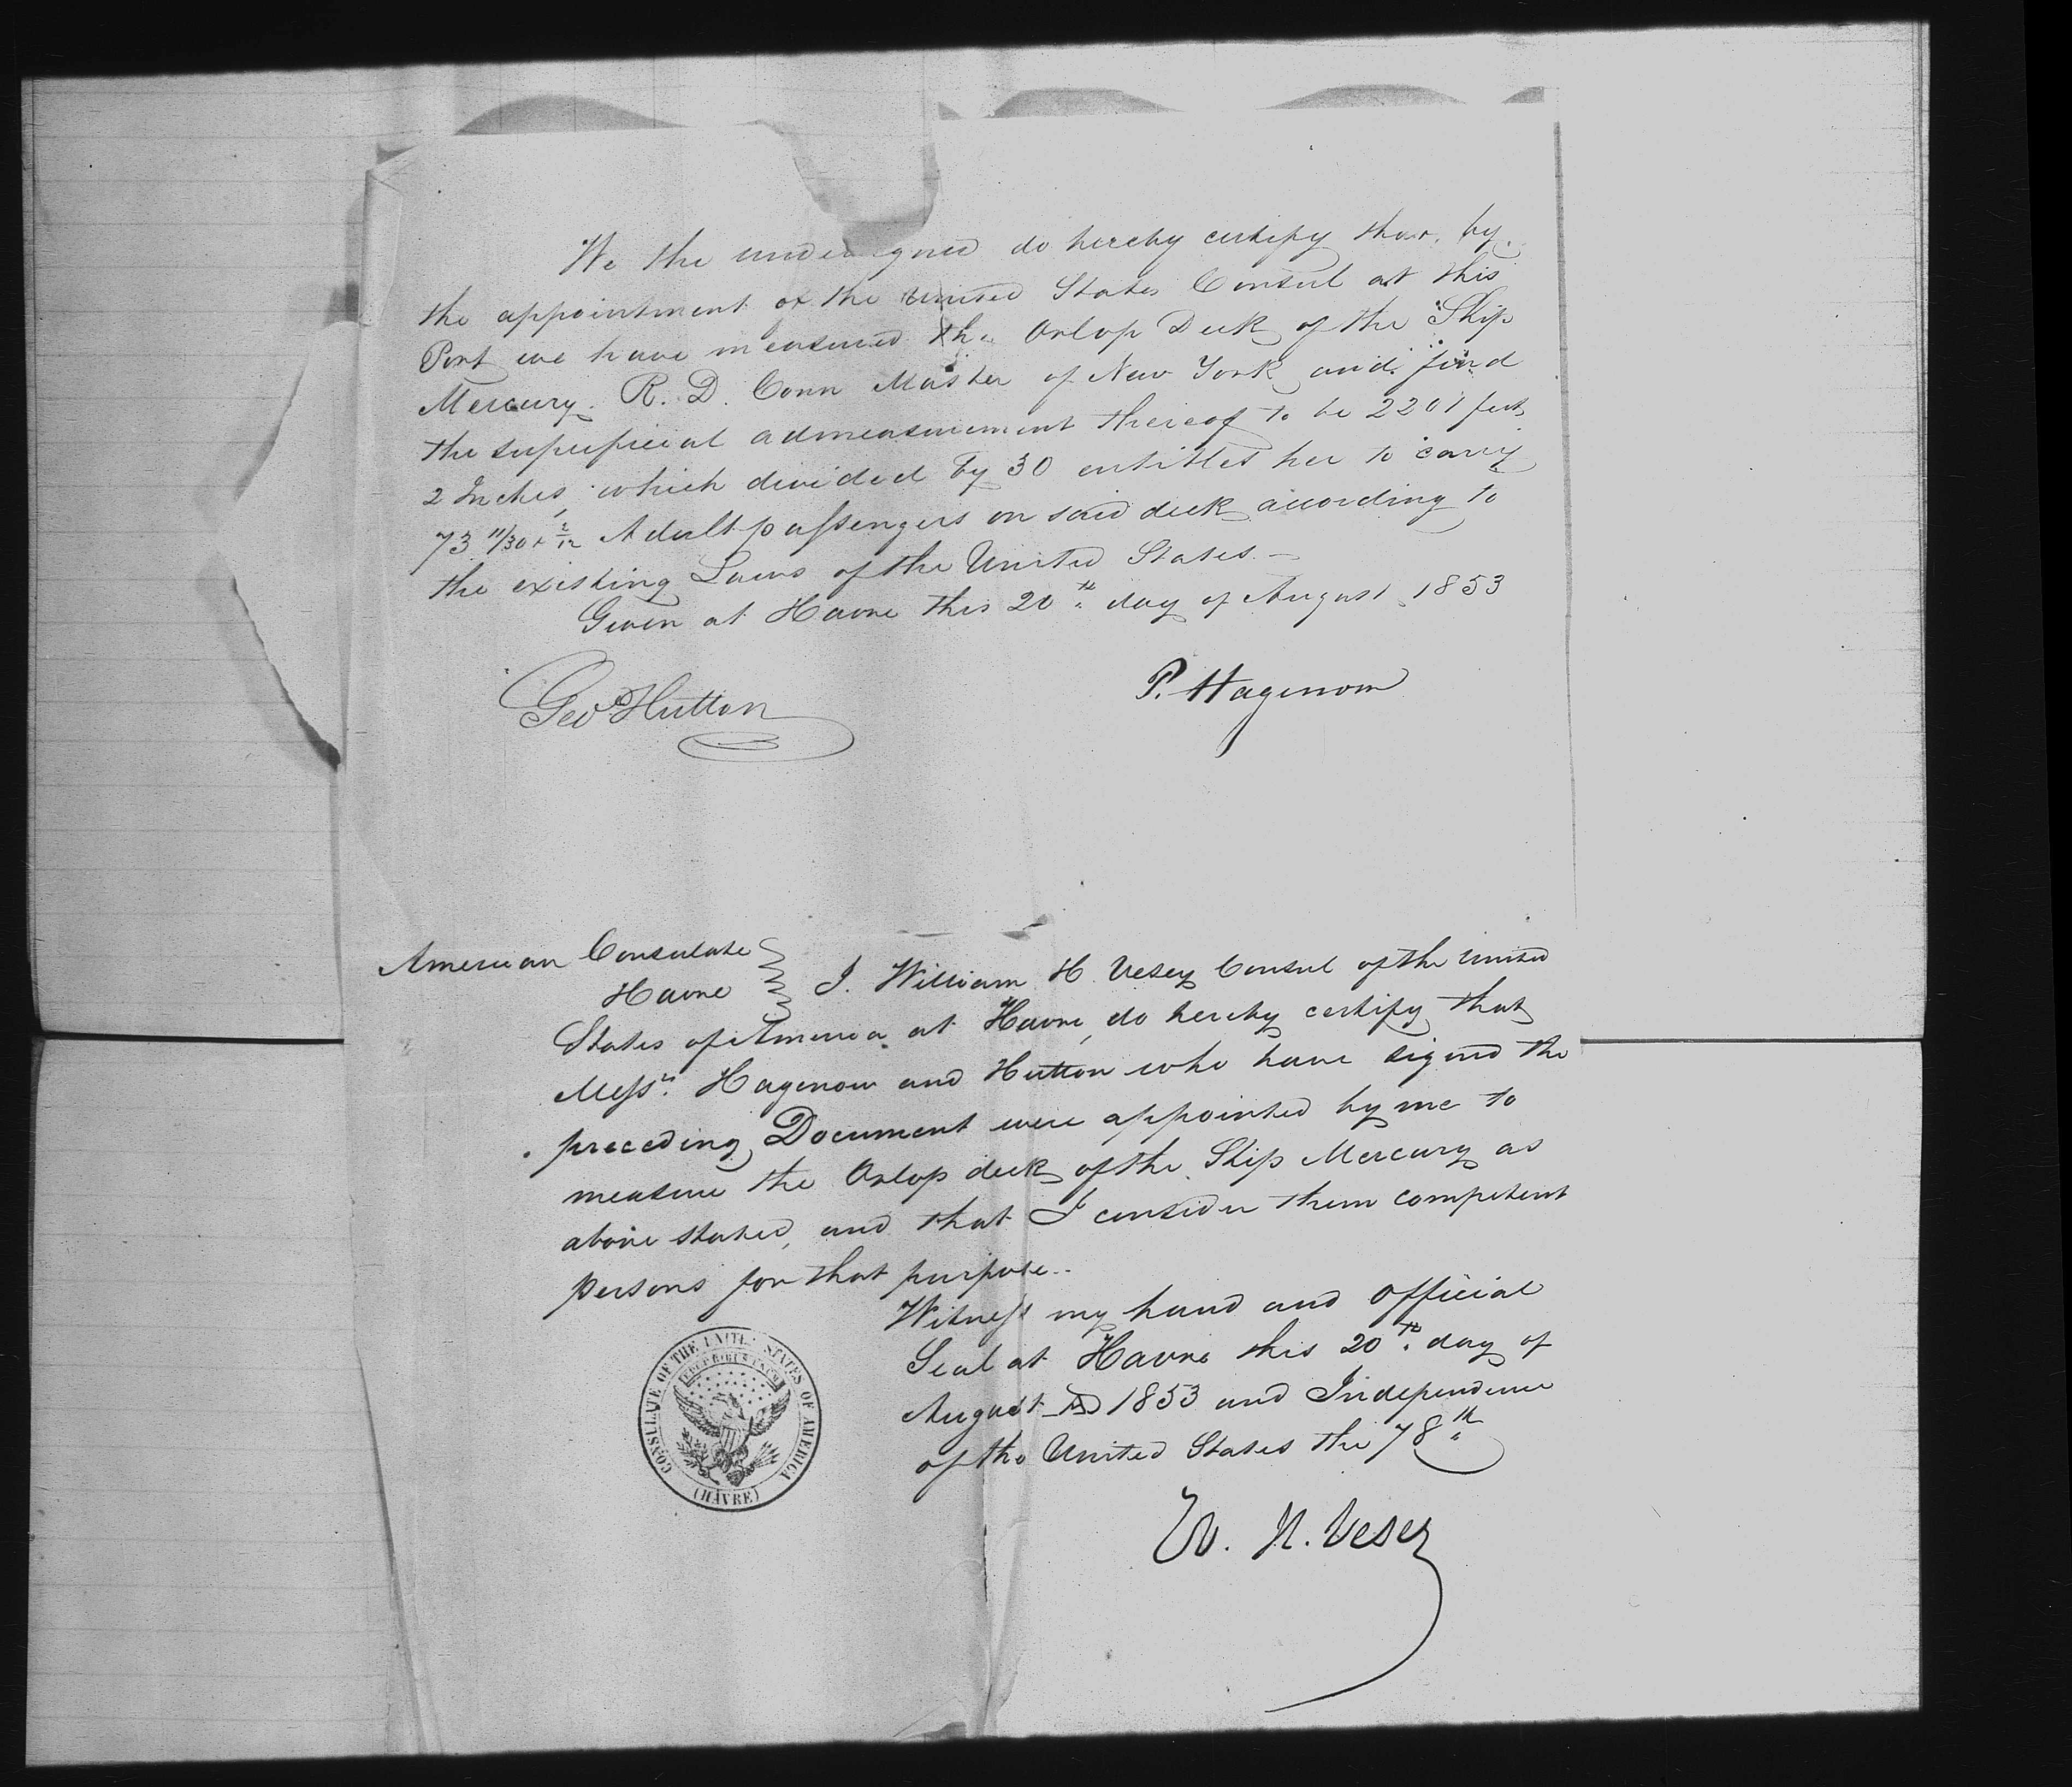 We the undersigned do hereby certify that, by
the appointment of the United States Consul at this
Port we have measured the Orlop Deck of the Ship
Mercury. R. D. Conn Master of New York and find
the superficial admeasurement thereof to be 2201 feet
2 Inches, which divided by 30 entitles her to carry
73 11/30 + 2/12 Adult passengers on said deck according to
the existing Laws of the United States.—
Given at Havre this 20th day of August 1853
Geo Hutton
P. Hagenow
American Consulate
Havre
I. William H. Vesey Consul of the United
States of America at Havre, do hereby certify that
Messrs. Hagenow and Hutton who have signed the
preceding Document were appointed by me to
measure the Orlop deck of the Ship Mercury as
above stated, and that I consider them competent
persons for that purpose..
Witness my hand and official
Seal at Havre this 20th day of
August AD 1853 and Independence
of the United States the 78th
W. H. Vesey
CONSULATE OF THE UNITED STATES OF AMERICA
E PLURIBUS UNUM
(HAVRE)